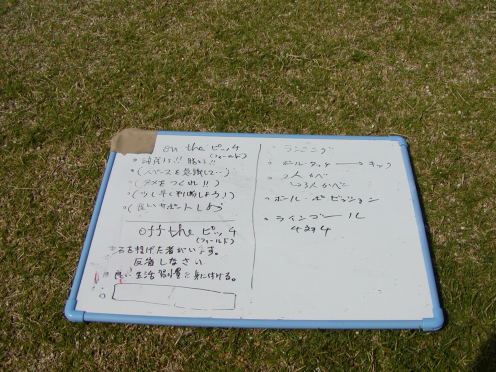 on the ピッチ
(フィールド)
(スペースを意識して…)
(タメをつくれ!!)
(少し早く判断しよう!)
(良いサポートしよう
off the ピッチ
(フィールド)
を投げた者がいます。
反省しなさい
良い生活習慣を身に付ける。
ランニング
ボールタッチ → キック
2人かべ
3人かべ
ボール・ポゼッション
ラインゴール
4対4